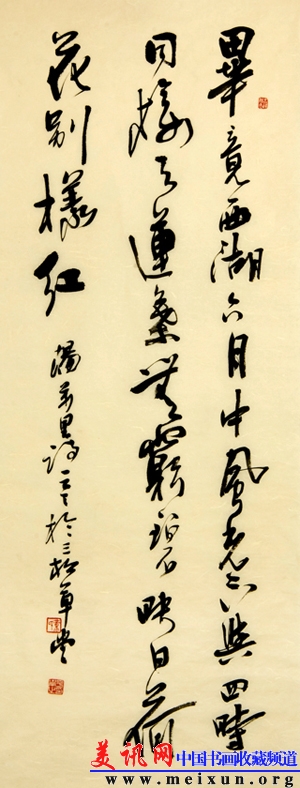 畢竟西湖六月中風光不與四時
同接天蓮葉無窮碧映日荷
花別樣紅
楊萬里詩 於三松草堂
美讯网 中国书画收藏频道
www.meixun.org